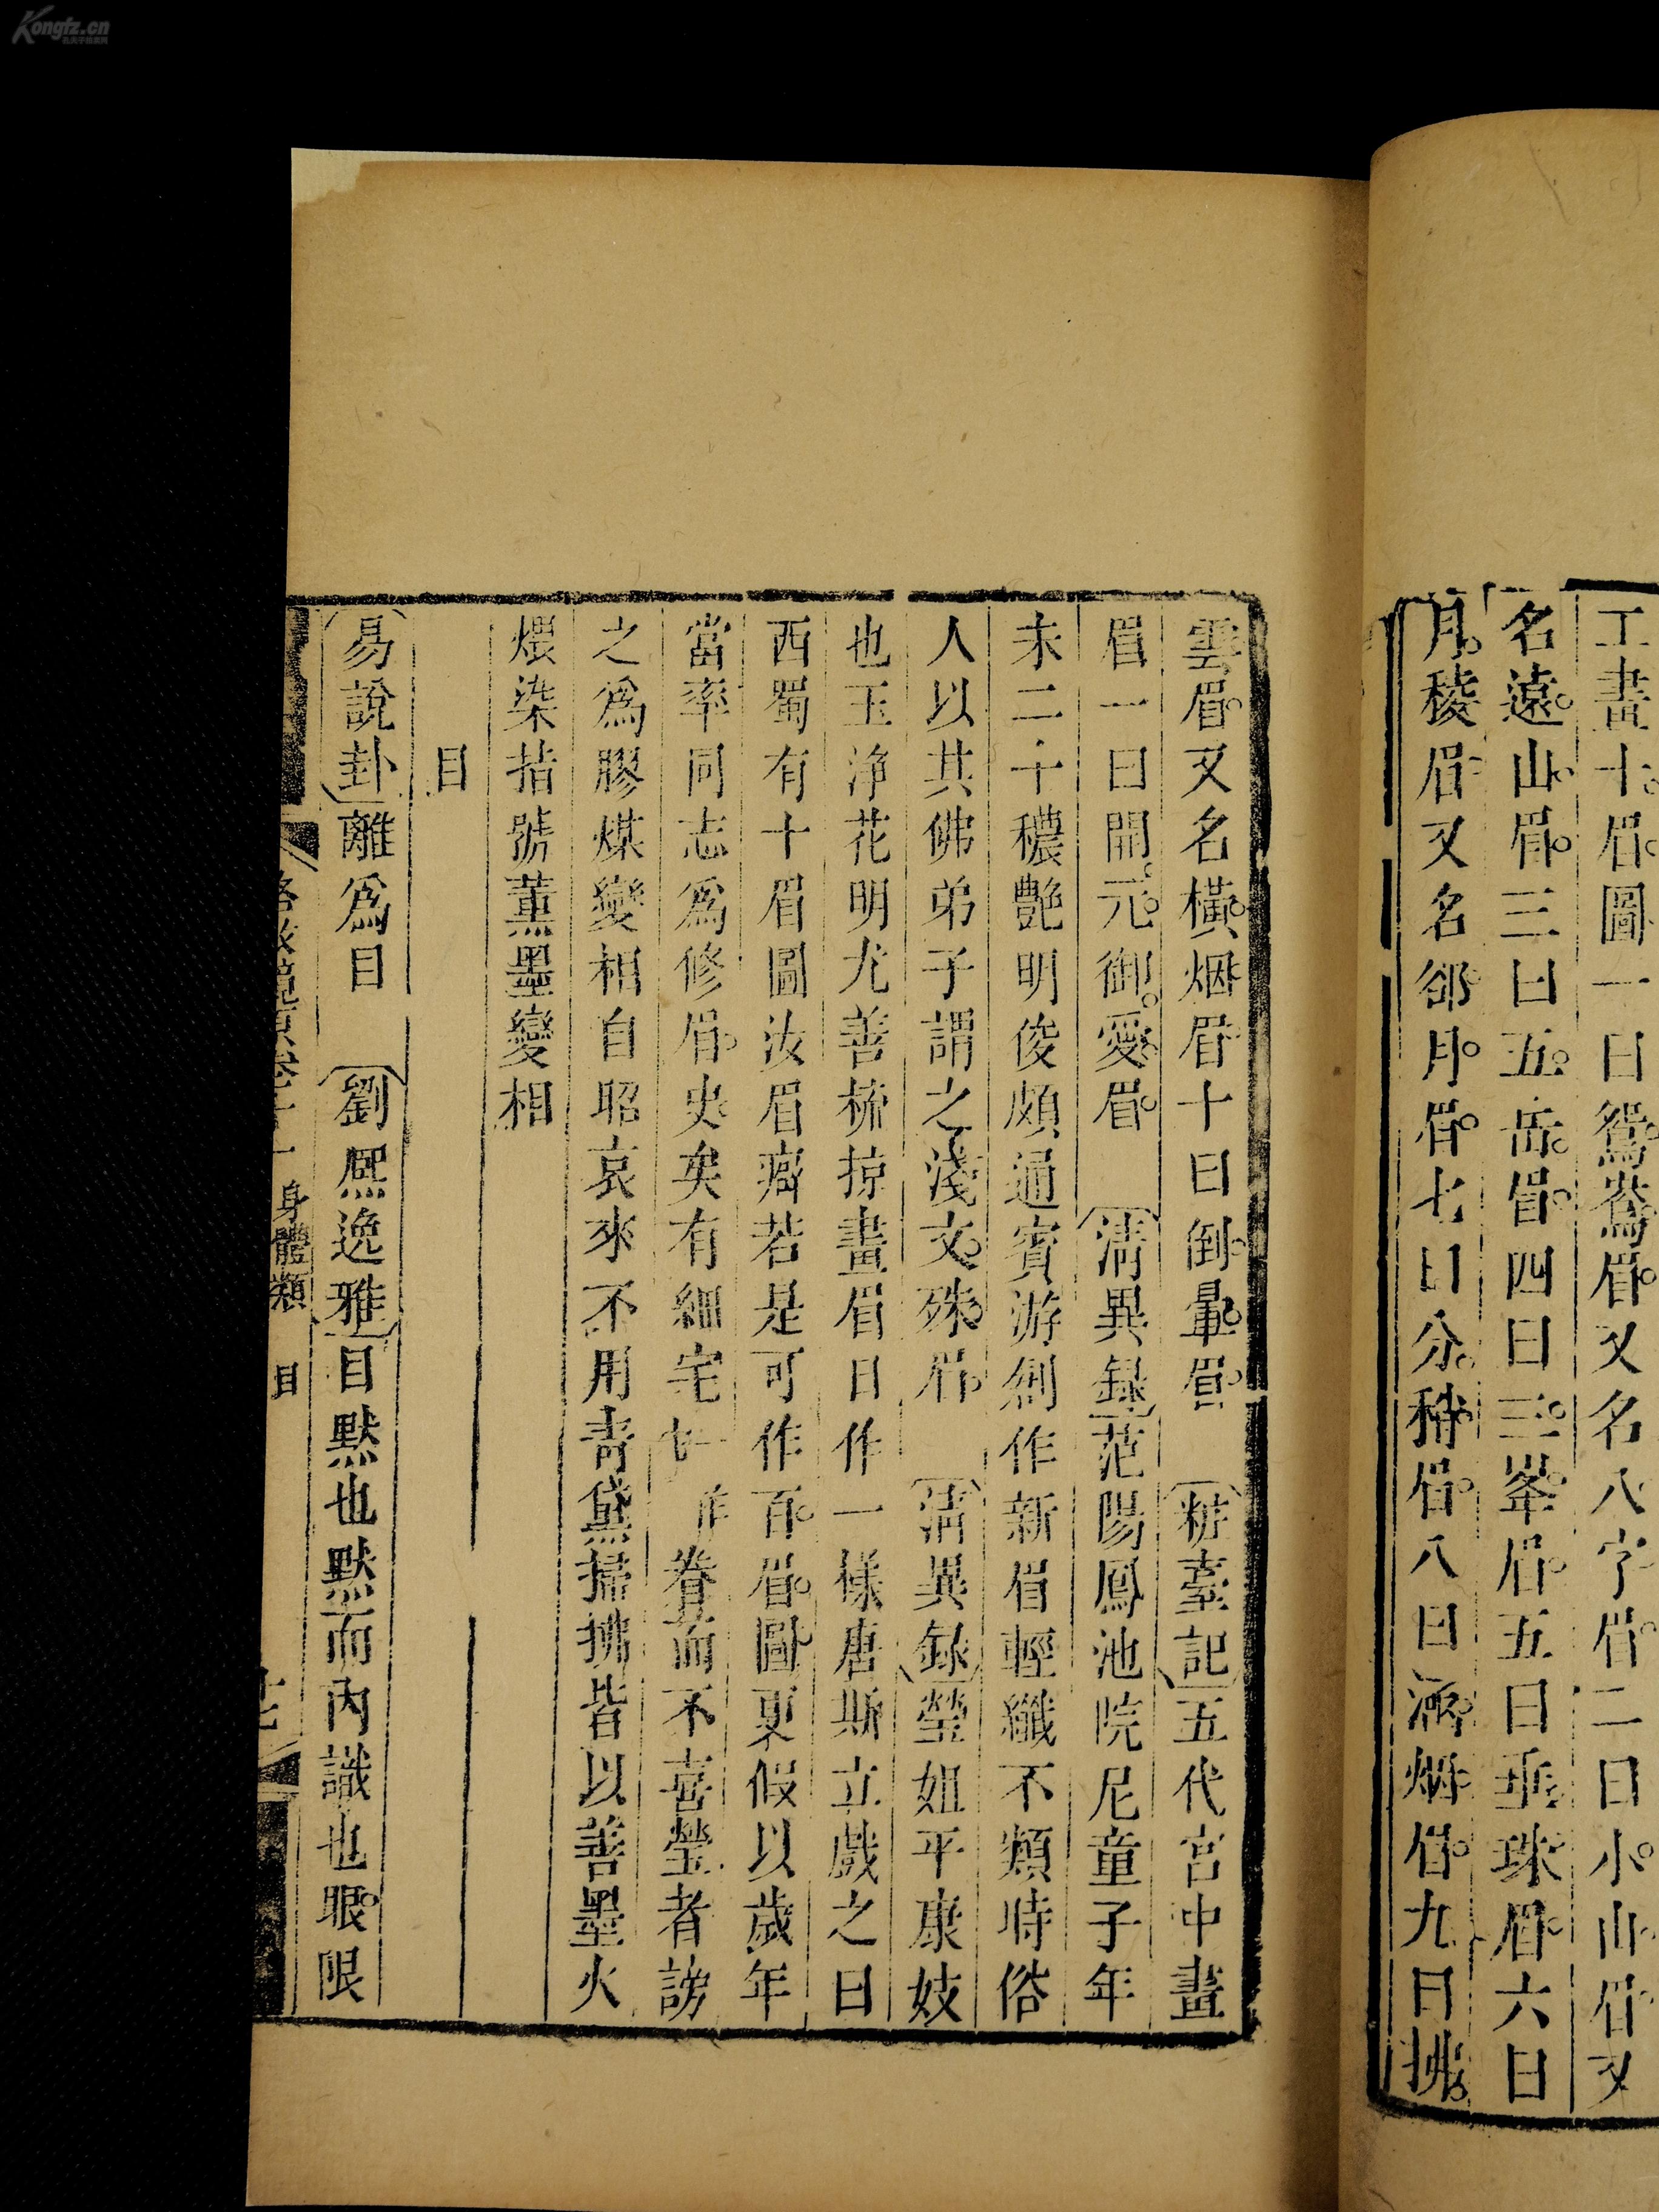 工畫十眉圖一曰鴛鴦眉又名八字眉二曰小山眉又
名遠山眉三曰五岳眉四曰三峯眉五曰垂珠眉六曰
月稜眉又名郤月眉七曰分稍眉八曰涵烟眉九曰拂
雲眉又名橫烟眉十曰倒暈眉 粧臺記五代宮中畫
眉一曰開元御愛眉 清異録范陽鳳池院尼童子年
未二十穠艶明俊頗通賓游創作新眉輕纖不類時俗
人以其佛弟子謂之淺文殊眉 清異録瑩姐平康妓
也玉淨花明尤善梳掠畫眉日作一樣唐斯立戲之曰
西蜀有十眉圖汝眉癖若是可作百眉圖更假以歲年
當率同志為修眉史矣有細宅 眷而不喜瑩者謗
之為膠煤變相自昭哀來不用青黛掃拂皆以善墨火
煨染指號薰墨變相
目
易說卦離為目 劉熙逸雅目黙也黙而內識也眼限
身體類 目
Kongfz.cn